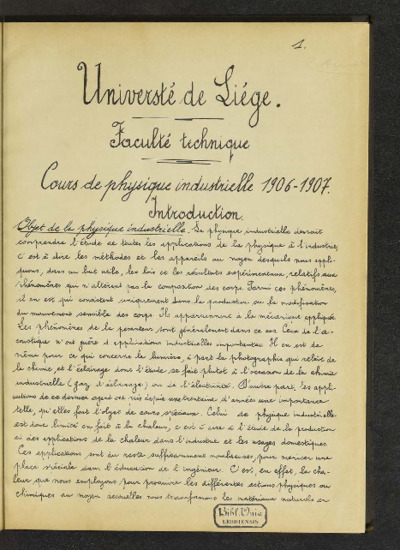 1.
Université de Liége.
Faculté technique
Cours de physique industrielle 1906-1907.
Introduction.
Objet de la physique industrielle. La physique industrielle devrait
comprendre l'étude de toutes les applications de la physique à l'industrie,
c'est à dire les méthodes et les appareils au moyen desquels nous appli-
quons, dans un but utile, les lois et les résultats expérimentaux, relatifs aux
phénomènes qui n'altèrent pas la composition des corps. Parmi ces phénomènes,
il en est qui consistent uniquement dans la production ou la modification
du mouvement sensible des corps. Ils appartiennent à la mécanique appliquée.
Les phénomènes de la pesanteur sont généralement dans ce cas. Ceux de l'a-
coustique n'ont guère d'applications industrielles importantes. Il en est de
même pour ce qui concerne la lumière, à part la photographie qui relève de
la chimie, et l'éclairage dont l'étude, se fait plutôt à l'occasion de la chimie
industrielle (gaz d'éclairage) ou de l'électricité. D'autre part, les appli-
cations de ce dernier agent ont pris depuis une trentaine d'années une importance
telle, qu'elles font l'objet de cours spéciaux. Celui de physique industrielle
est donc limité en fait à la chaleur, c'est à dire à l'étude de la production
et des applications de la chaleur dans l'industrie et les usages domestiques.
Ces applications sont du reste suffisamment nombreuses, pour mériter une
place spéciale dans l'éducation de l'ingénieur. C'est, en effet, la cha-
leur que nous employons pour produire les différentes actions physiques ou
chimiques au moyen desquelles nous transformons les matériaux naturels en
LEODIENSIS